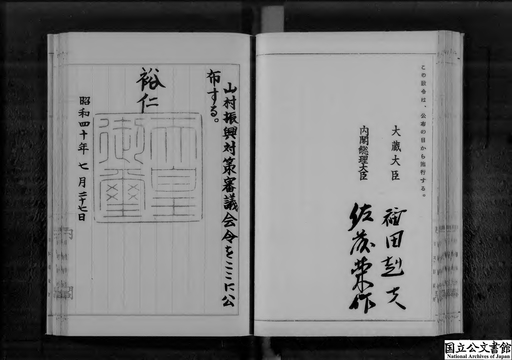 この政令は、公布の日から施行する。
大蔵大臣
福田赳夫
内閣総理大臣
佐藤栄作
山村振興対策審議会令をここに公
布する。
裕仁
天皇
御璽
昭和四十年七月二十七日
国立公文書館
National Archives of Japan